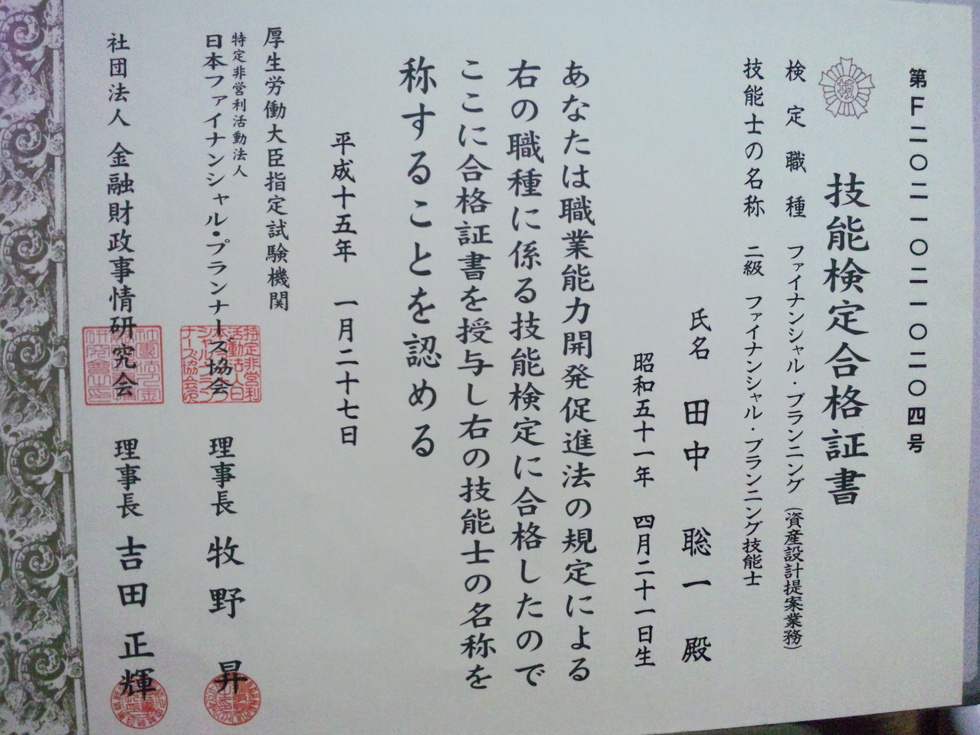 第F二〇二一〇二一〇二〇四号
技能検定合格証書
検定職種 ファイナンシャル・プランニング(資産設計提案業務)
技能士の名称 二級 ファイナンシャル・プランニング技能士
氏名 田中 聡一 殿
昭和五十一年 四月二十一日生
あなたは職業能力開発促進法の規定による
右の職種に係る技能検定に合格したので
ここに合格証書を授与し右の技能士の名称を
称することを認める
平成十五年 一月二十七日
厚生労働大臣指定試験機関
特定非営利活動法人
日本ファイナンシャル・プランナーズ協会 理事長 牧野 昇
社団法人 金融財政事情研究会 理事長 吉田 正輝